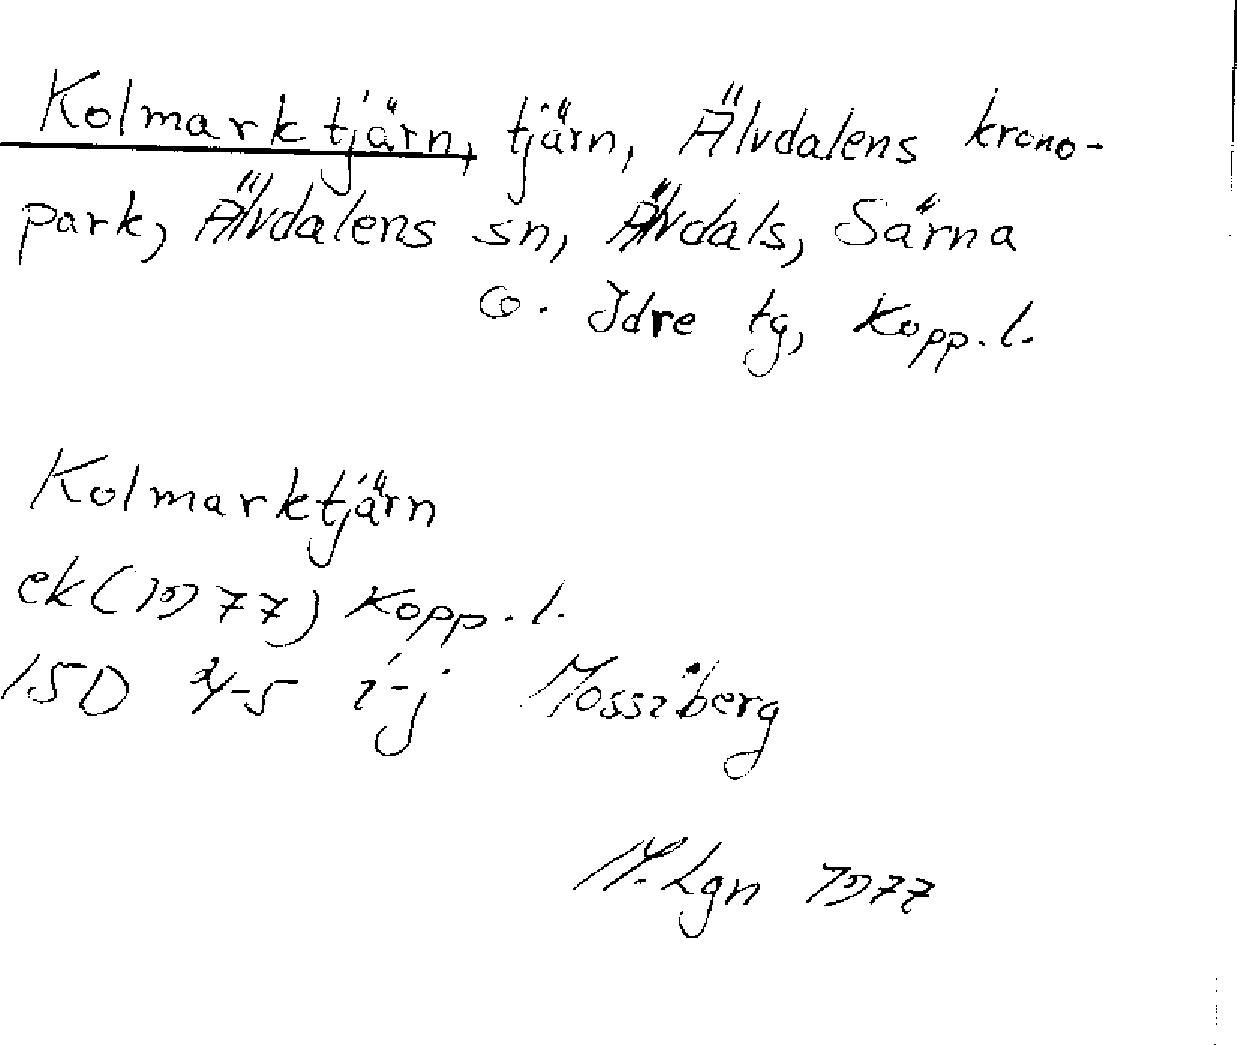 Kolmarktjärn, tjärn, Älvdalens krono-
park, Älvdalens sn, Älvdals, Särna
o. Idre tg, Kopp. l.
Kolmarktjärn
ek (1977) Kopp. l.
15D 4-5 i-j Mossiberg
M. Lgn 1977